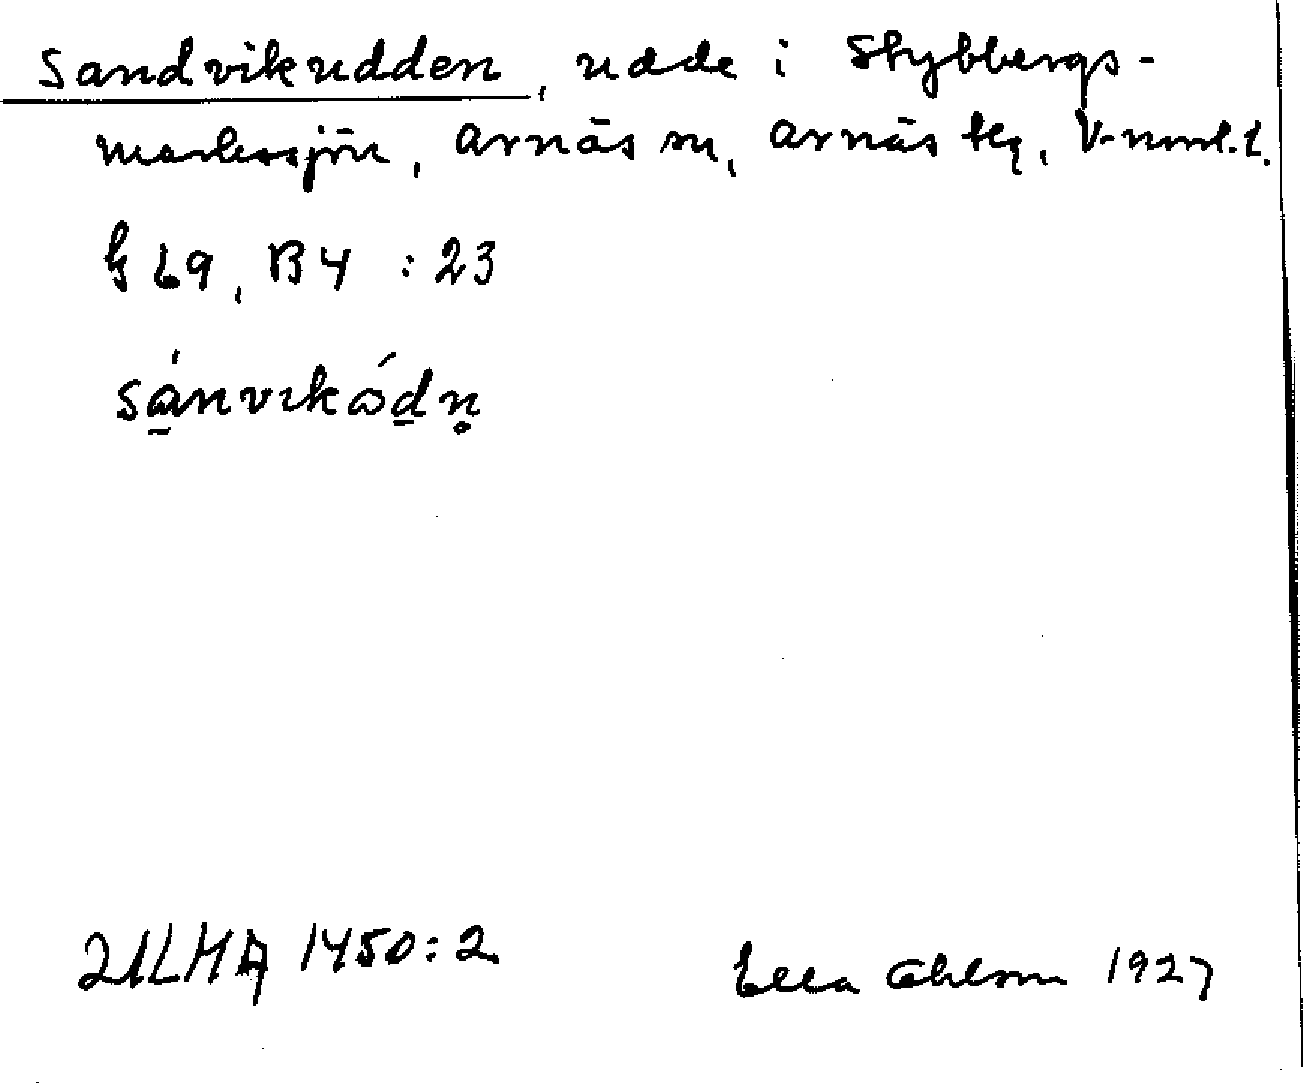 Sandvikudden, udde i Stybbergs-
markssjön, Arnäs sn, Arnäs tlg, V-norrl. l.
G 69, B 4 : 23
sánvikódn̥
ULMA 1450:2
Ella Ohlson 1927